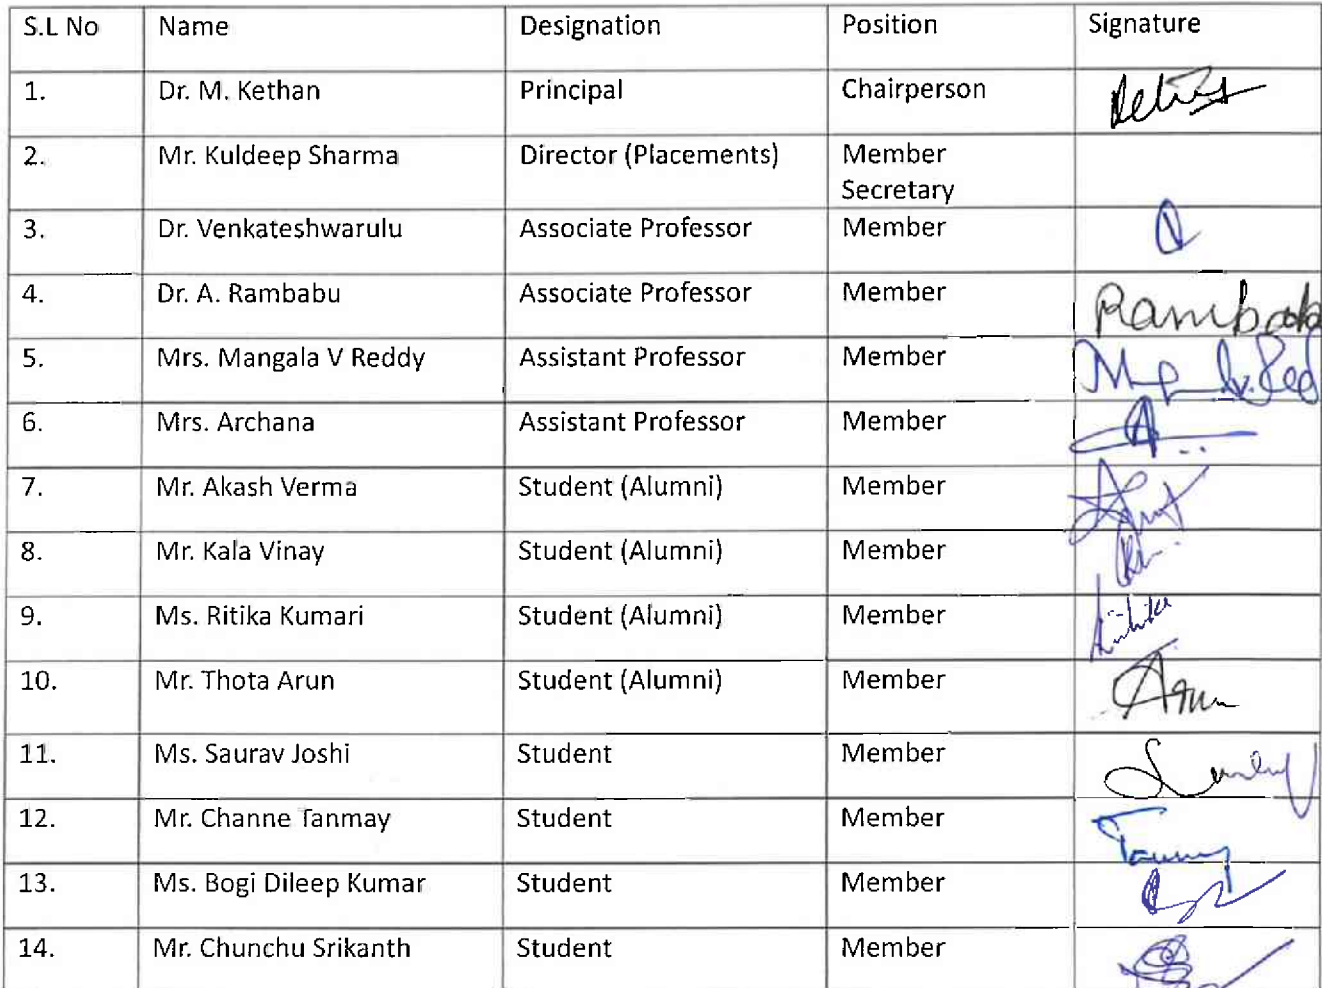 S.L No Name Designation Position Signature
1. Dr. M. Kethan Principal Chairperson
2. Mr. Kuldeep Sharma Director (Placements) Member
Secretary
3. Dr. Venkateshwarulu Associate Professor Member
4. Dr. A. Rambabu Associate Professor Member
5. Mrs. Mangala V Reddy Assistant Professor Member
6. Mrs. Archana Assistant Professor Member
7. Mr. Akash Verma Student (Alumni) Member
8. Mr. Kala Vinay Student (Alumni) Member
9. Ms. Ritika Kumari Student (Alumni) Member
10. Mr. Thota Arun Student (Alumni) Member Arun
11. Ms. Saurav Joshi Student Member
12. Mr. Channe Tanmay Student Member
13. Ms. Bogi Dileep Kumar Student Member
14. Mr. Chunchu Srikanth Student Member